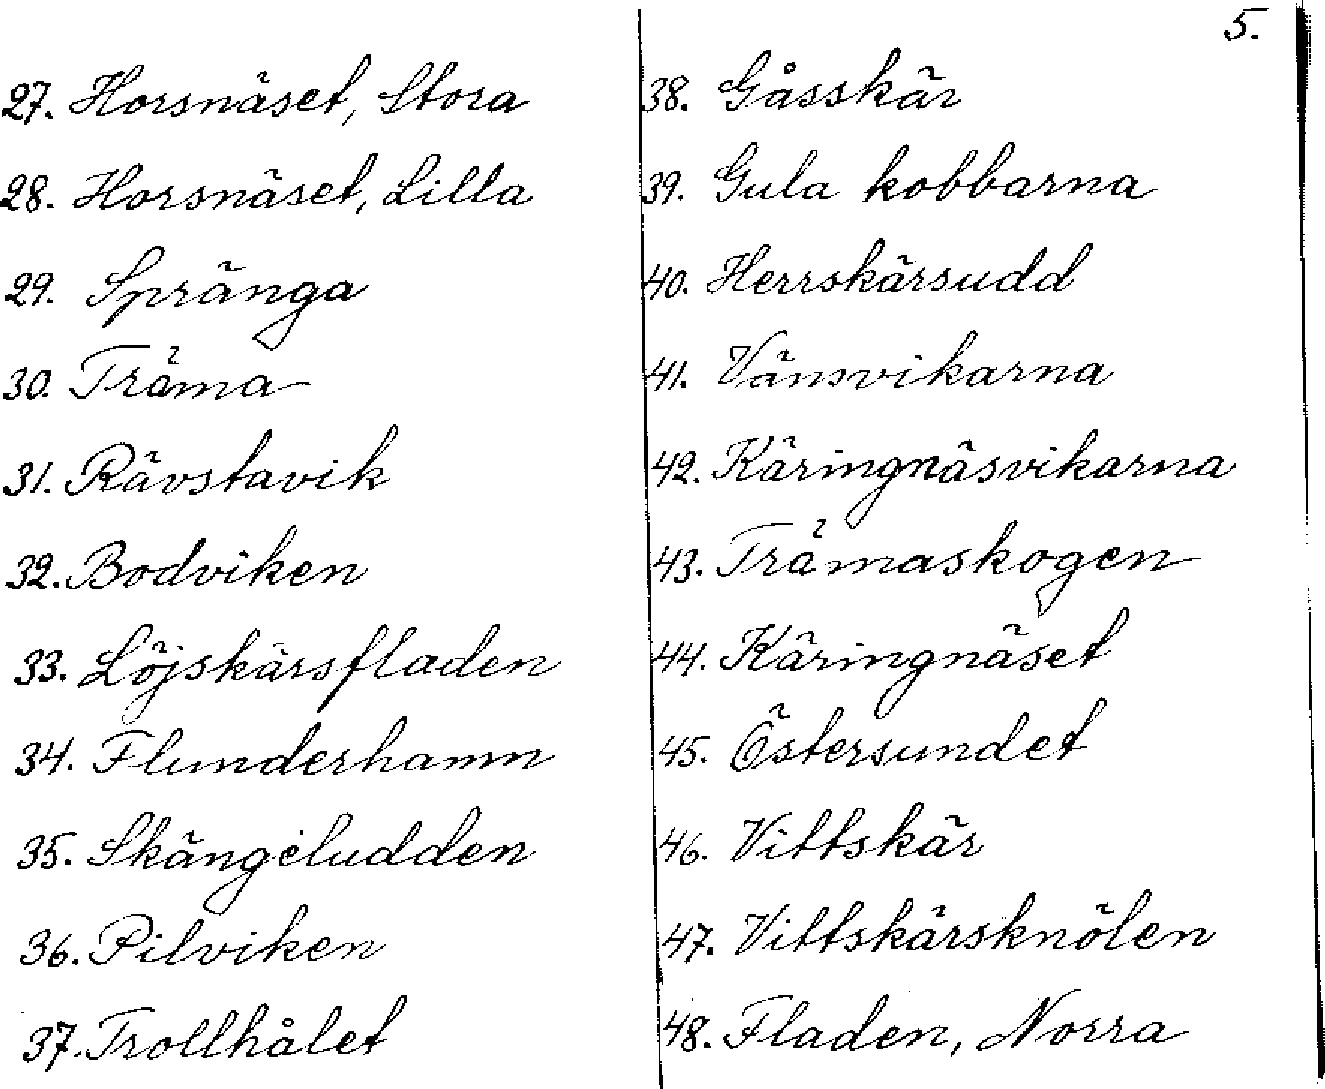 5.
27. Horsnäset, Stora
28. Horsnäset, Lilla
29. Spränga
30. Träma
31. Rävstavik
32. Bodviken
33. Löjskärsfladen
34. Flunderhamn
35. Skängeludden
36. Pilviken
37. Trollhålet
38. Gåsskär
39. Gula kobbarna
40. Herrskärsudd
41. Vänsvikarna
42. Käringnäsvikarna
43. Trämaskogen
44. Käringnäset
45. Östersundet
46. Vittskär
47. Vittskärsknölen
48. Fladen, Norra